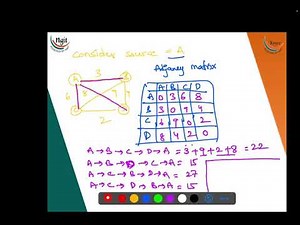 Consider source = A
Adjancy matrix
A 3 B
6 8 9 4
C 2 D
A B C D
A 0 3 6 8
B 3 0 9 4
C 6 9 0 2
D 8 4 2 0
A → B → C → D → A = 3+9+2+8 = 22
A → B → D → C → A = 15
A → C → B → D → A = 27
A → C → D → B → A = 15